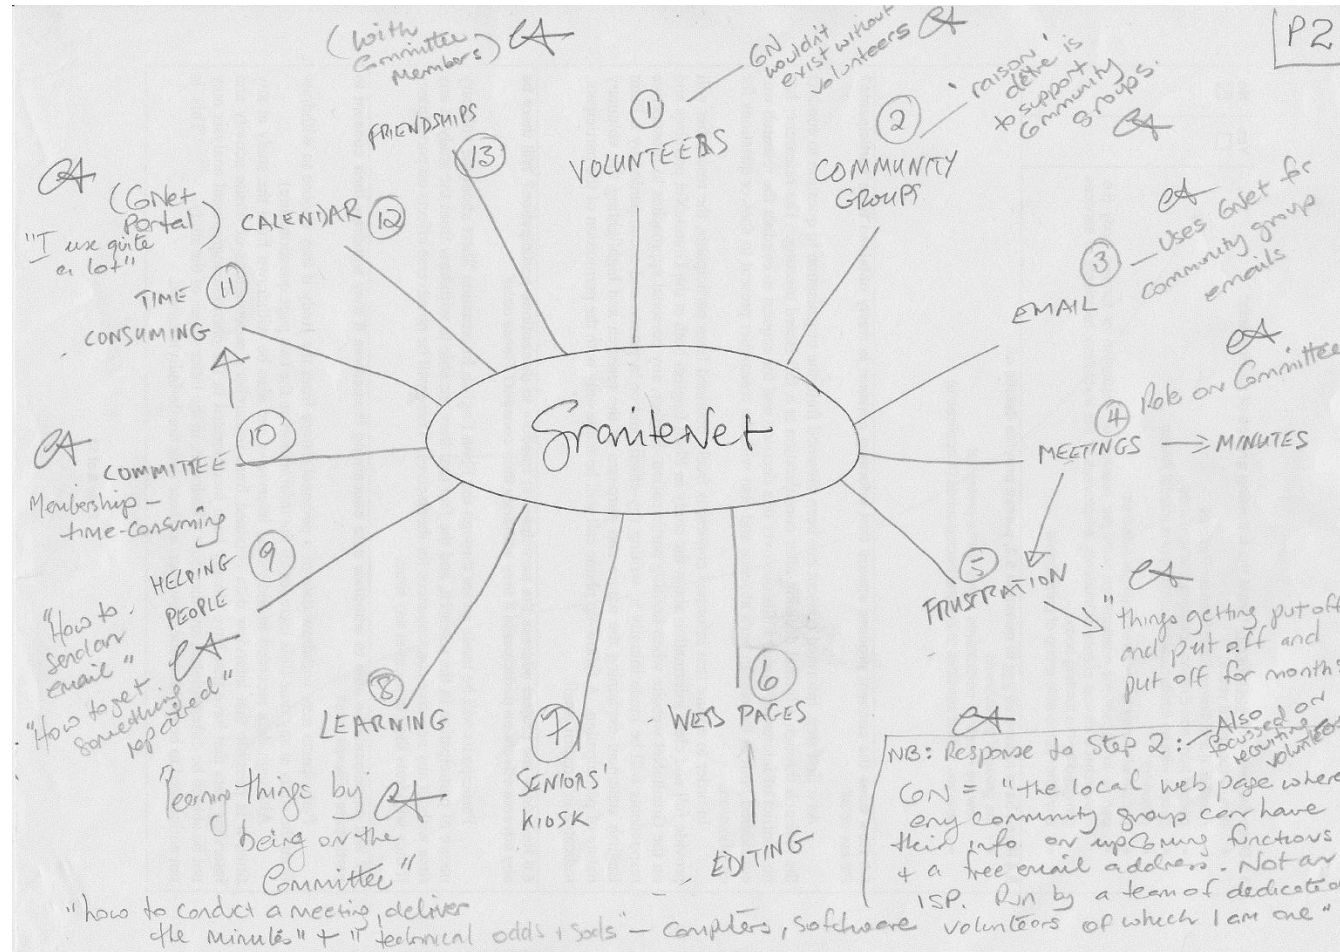 P2
(With
Committee
Members)
GN
wouldn't
exist without
volunteers
1
VOLUNTEERS
'raison
d'etre is
to support
Community
groups.
2
COMMUNITY
GROUPS
3
EMAIL
Uses GNet for
community group
emails
4
Role on Committee
MEETINGS → MINUTES
5
FRUSTRATION
"things getting put off
and put off and
put off for months
6
WEB PAGES
EDITING
7
SENIORS'
KIOSK
8
LEARNING
"learning things by
being on the
Committee"
"how to conduct a meeting, deliver
the minutes" + "technical odds & sods" – computers, software
9
HELPING
PEOPLE
"How to
send an
email"
"How to get
something
repaired"
10
COMMITTEE
Membership –
time-consuming
11
TIME
CONSUMING
12
CALENDAR
(GNet
Portal)
"I use quite
a lot"
13
FRIENDSHIPS
GraniteNet
NB: Response to Step 2: – Also
focussed on
recruiting
volunteers
GN = "the local web page where
any community group can have
their info on upcoming functions
+ a free email address. Not an
ISP. Run by a team of dedicated
volunteers of which I am one"